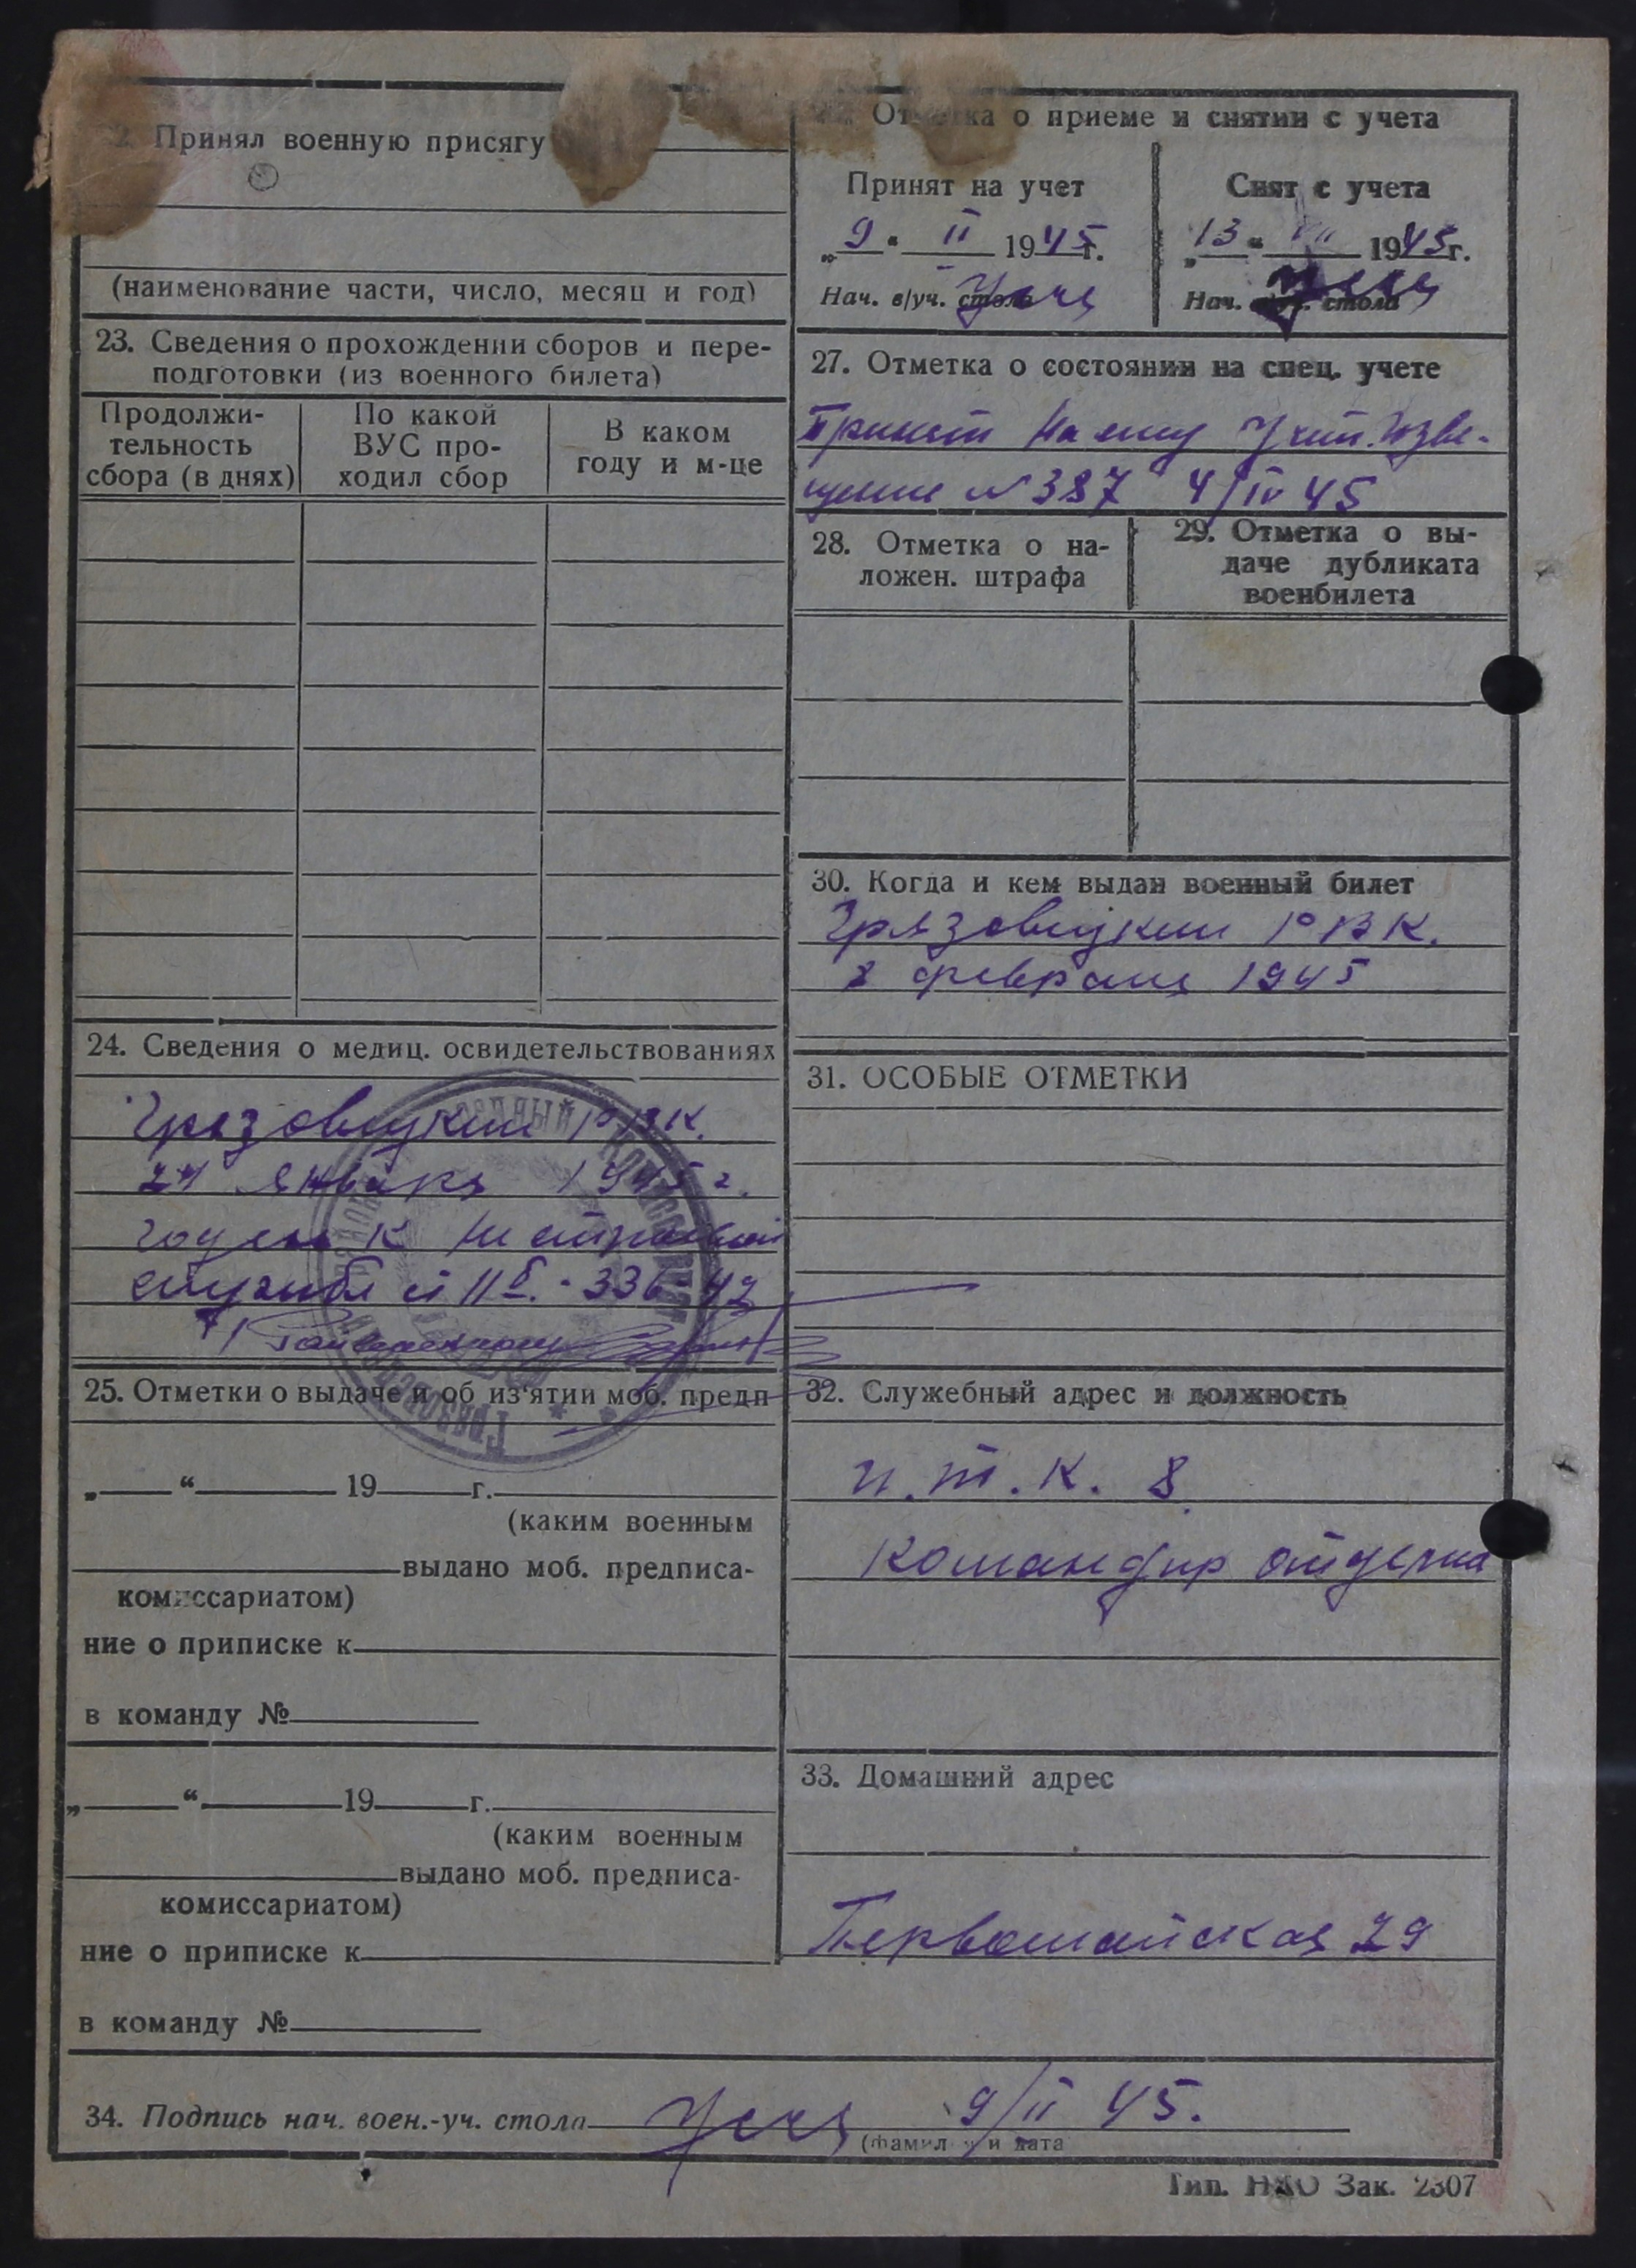 Принял военную присягу
(наименование части, число, месяц и год)
23. Сведения о прохождении сборов и пере-
подготовки (из военного билета)
Продолжи-
тельность
сбора (в днях)
По какой
ВУС про-
ходил сбор
В каком
году и м-це
24. Сведения о медиц. освидетельствованиях
Грязовицким РВК.
24 января 1945 г.
годен к нестроевой
службе ст IIб. - 336-42
25. Отметки о выдаче и об из'ятии моб. предп
„ “ 19 г.
(каким военным
выдано моб. предписа-
комиссариатом)
ние о приписке к
в команду №
„ “ 19 г.
(каким военным
выдано моб. предписа-
комиссариатом)
ние о приписке к
в команду №
Отметка о приеме и снятии с учета
Принят на учет
„9“ II 1945г.
Нач. в/уч. стола
Снят с учета
„13“ VII 1945г.
Нач. в/уч. стола
27. Отметка о состоянии на спец. учете
Принят на спец учет. Изве-
щение № 387 4/IV 45
28. Отметка о на-
ложен. штрафа
29. Отметка о вы-
даче дубликата
военбилета
30. Когда и кем выдан военный билет
Грязовицким РВК.
8 февраля 1945
31. ОСОБЫЕ ОТМЕТКИ
32. Служебный адрес и должность
и.т.к. 8
командир отделен
33. Домашний адрес
Первомайская 29
34. Подпись нач. воен.-уч. стола 9/II 45.
(фамилия и дата
Тип. НКО Зак. 2307